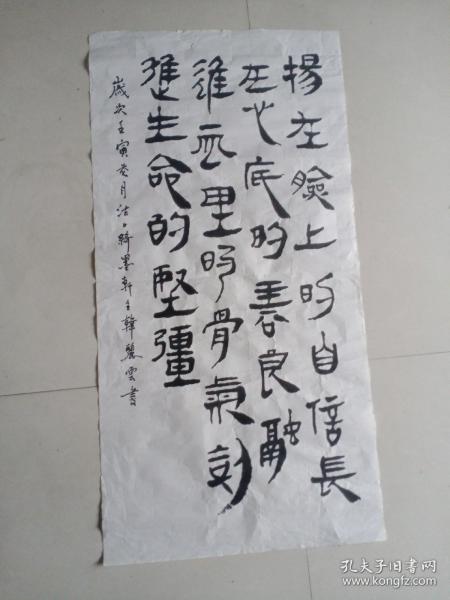 揚在臉上的自信長
在心底的善良融
進血里的骨氣刻
進生命的堅彊
歲次壬寅癸月沽上綺墨軒主韓麗雲書
孔夫子旧书网
www.kongfz.com